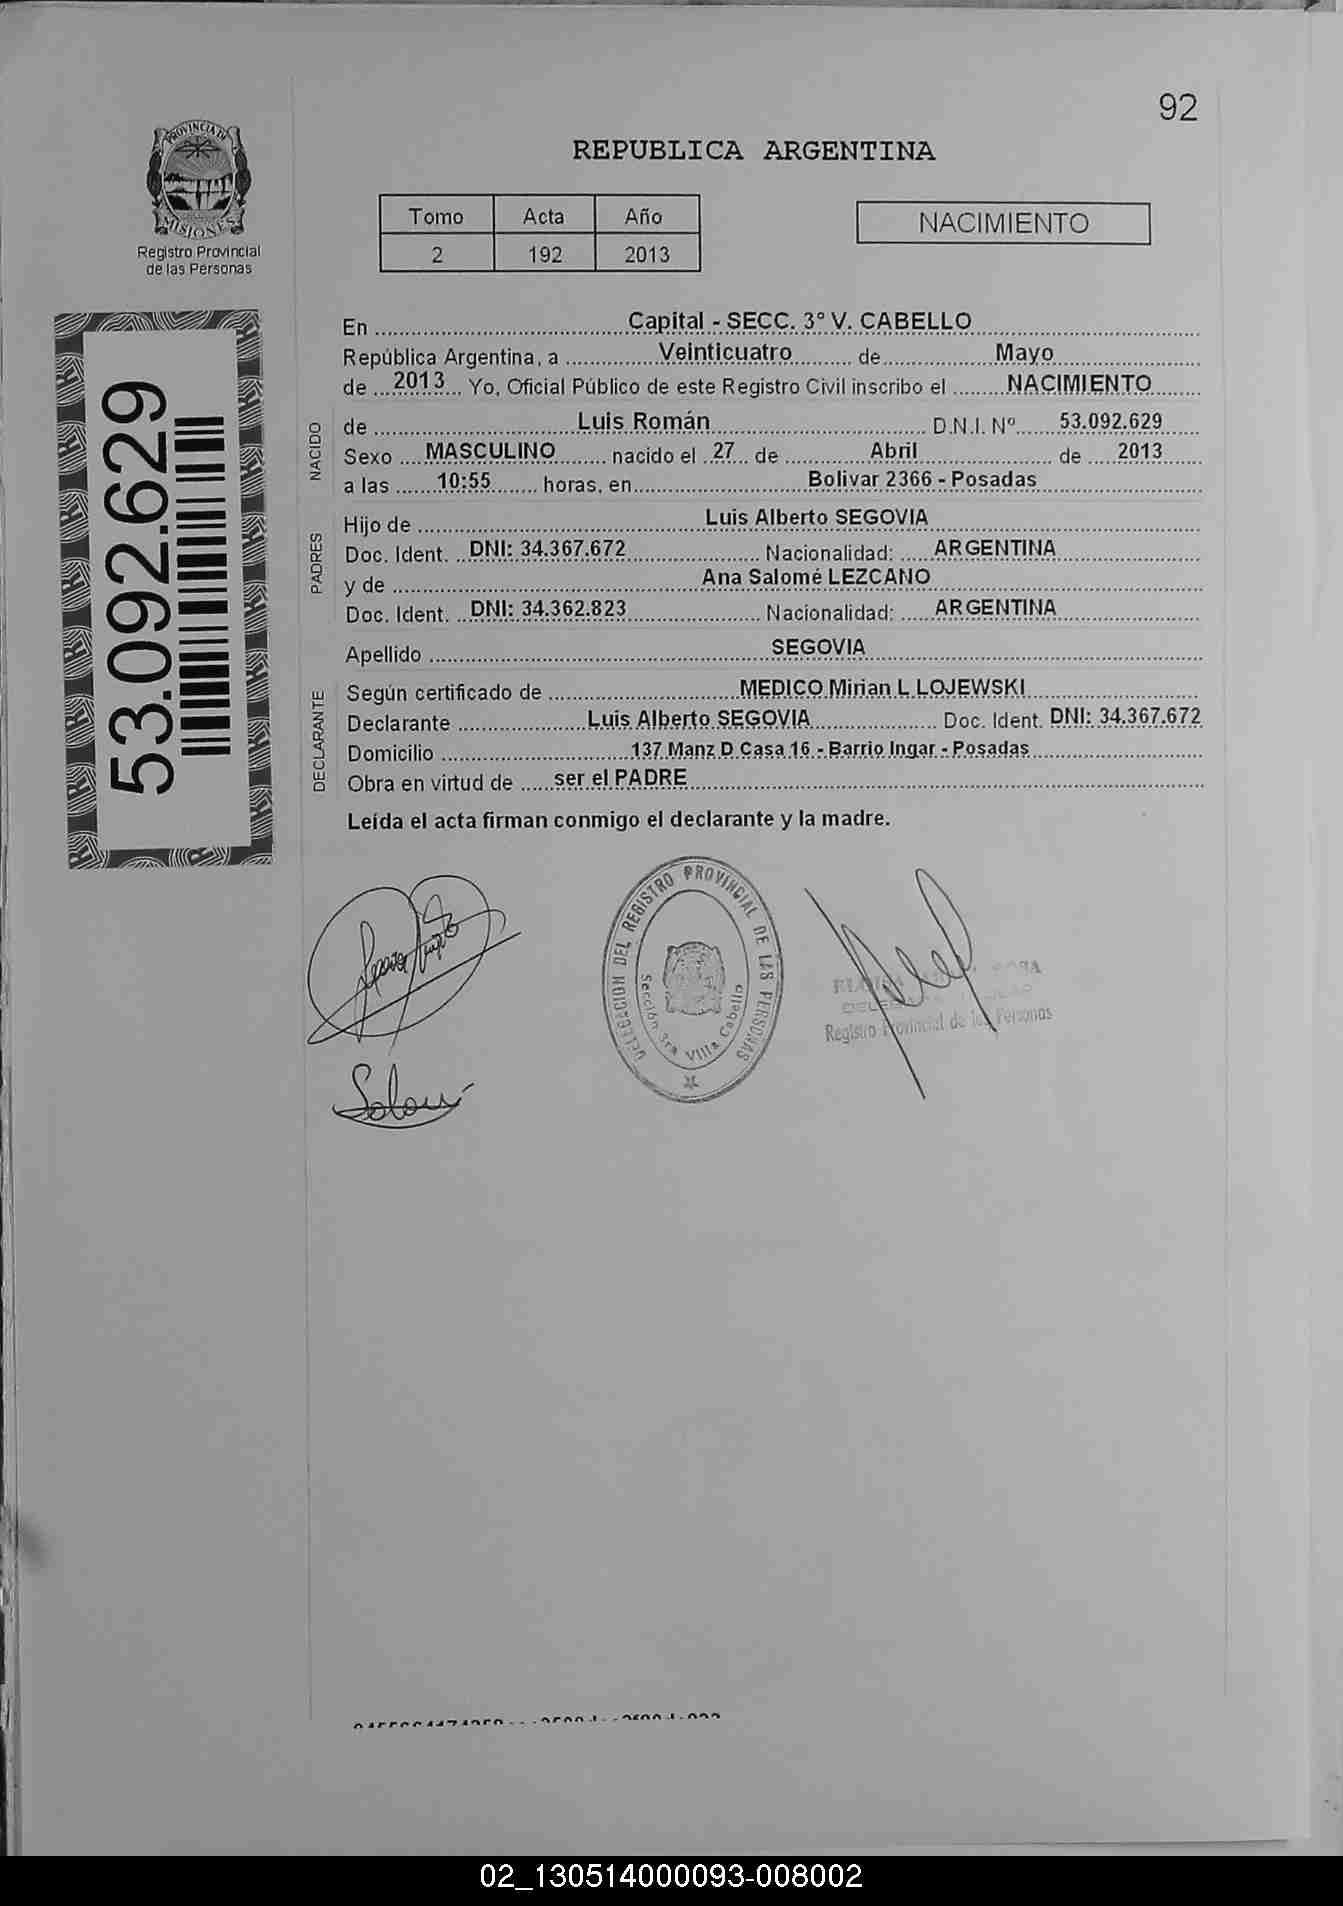 92
PROVINCIA DE
MISIONES
Registro Provincial
de las Personas
REPUBLICA ARGENTINA
Tomo Acta Año
2 192 2013
NACIMIENTO
53.092.629
En Capital - SECC. 3° V. CABELLO
República Argentina, a Veinticuatro de Mayo
de 2013 Yo, Oficial Público de este Registro Civil inscribo el NACIMIENTO
NACIDO
de Luis Román D.N.I. Nº 53.092.629
Sexo MASCULINO nacido el 27 de Abril de 2013
a las 10:55 horas, en Bolivar 2366 - Posadas
PADRES
Hijo de Luis Alberto SEGOVIA
Doc. Ident. DNI: 34.367.672 Nacionalidad: ARGENTINA
y de Ana Salomé LEZCANO
Doc. Ident. DNI: 34.362.823 Nacionalidad: ARGENTINA
Apellido SEGOVIA
DECLARANTE
Según certificado de MEDICO Mirian L LOJEWSKI
Declarante Luis Alberto SEGOVIA Doc. Ident. DNI: 34.367.672
Domicilio 137 Manz D Casa 16 - Barrio Ingar - Posadas
Obra en virtud de ser el PADRE
Leída el acta firman conmigo el declarante y la madre.
DELEGACION DEL REGISTRO PROVINCIAL DE LAS PERSONAS
Sección 3ra Villa Cabello
Registro Provincial de las Personas
02_130514000093-008002